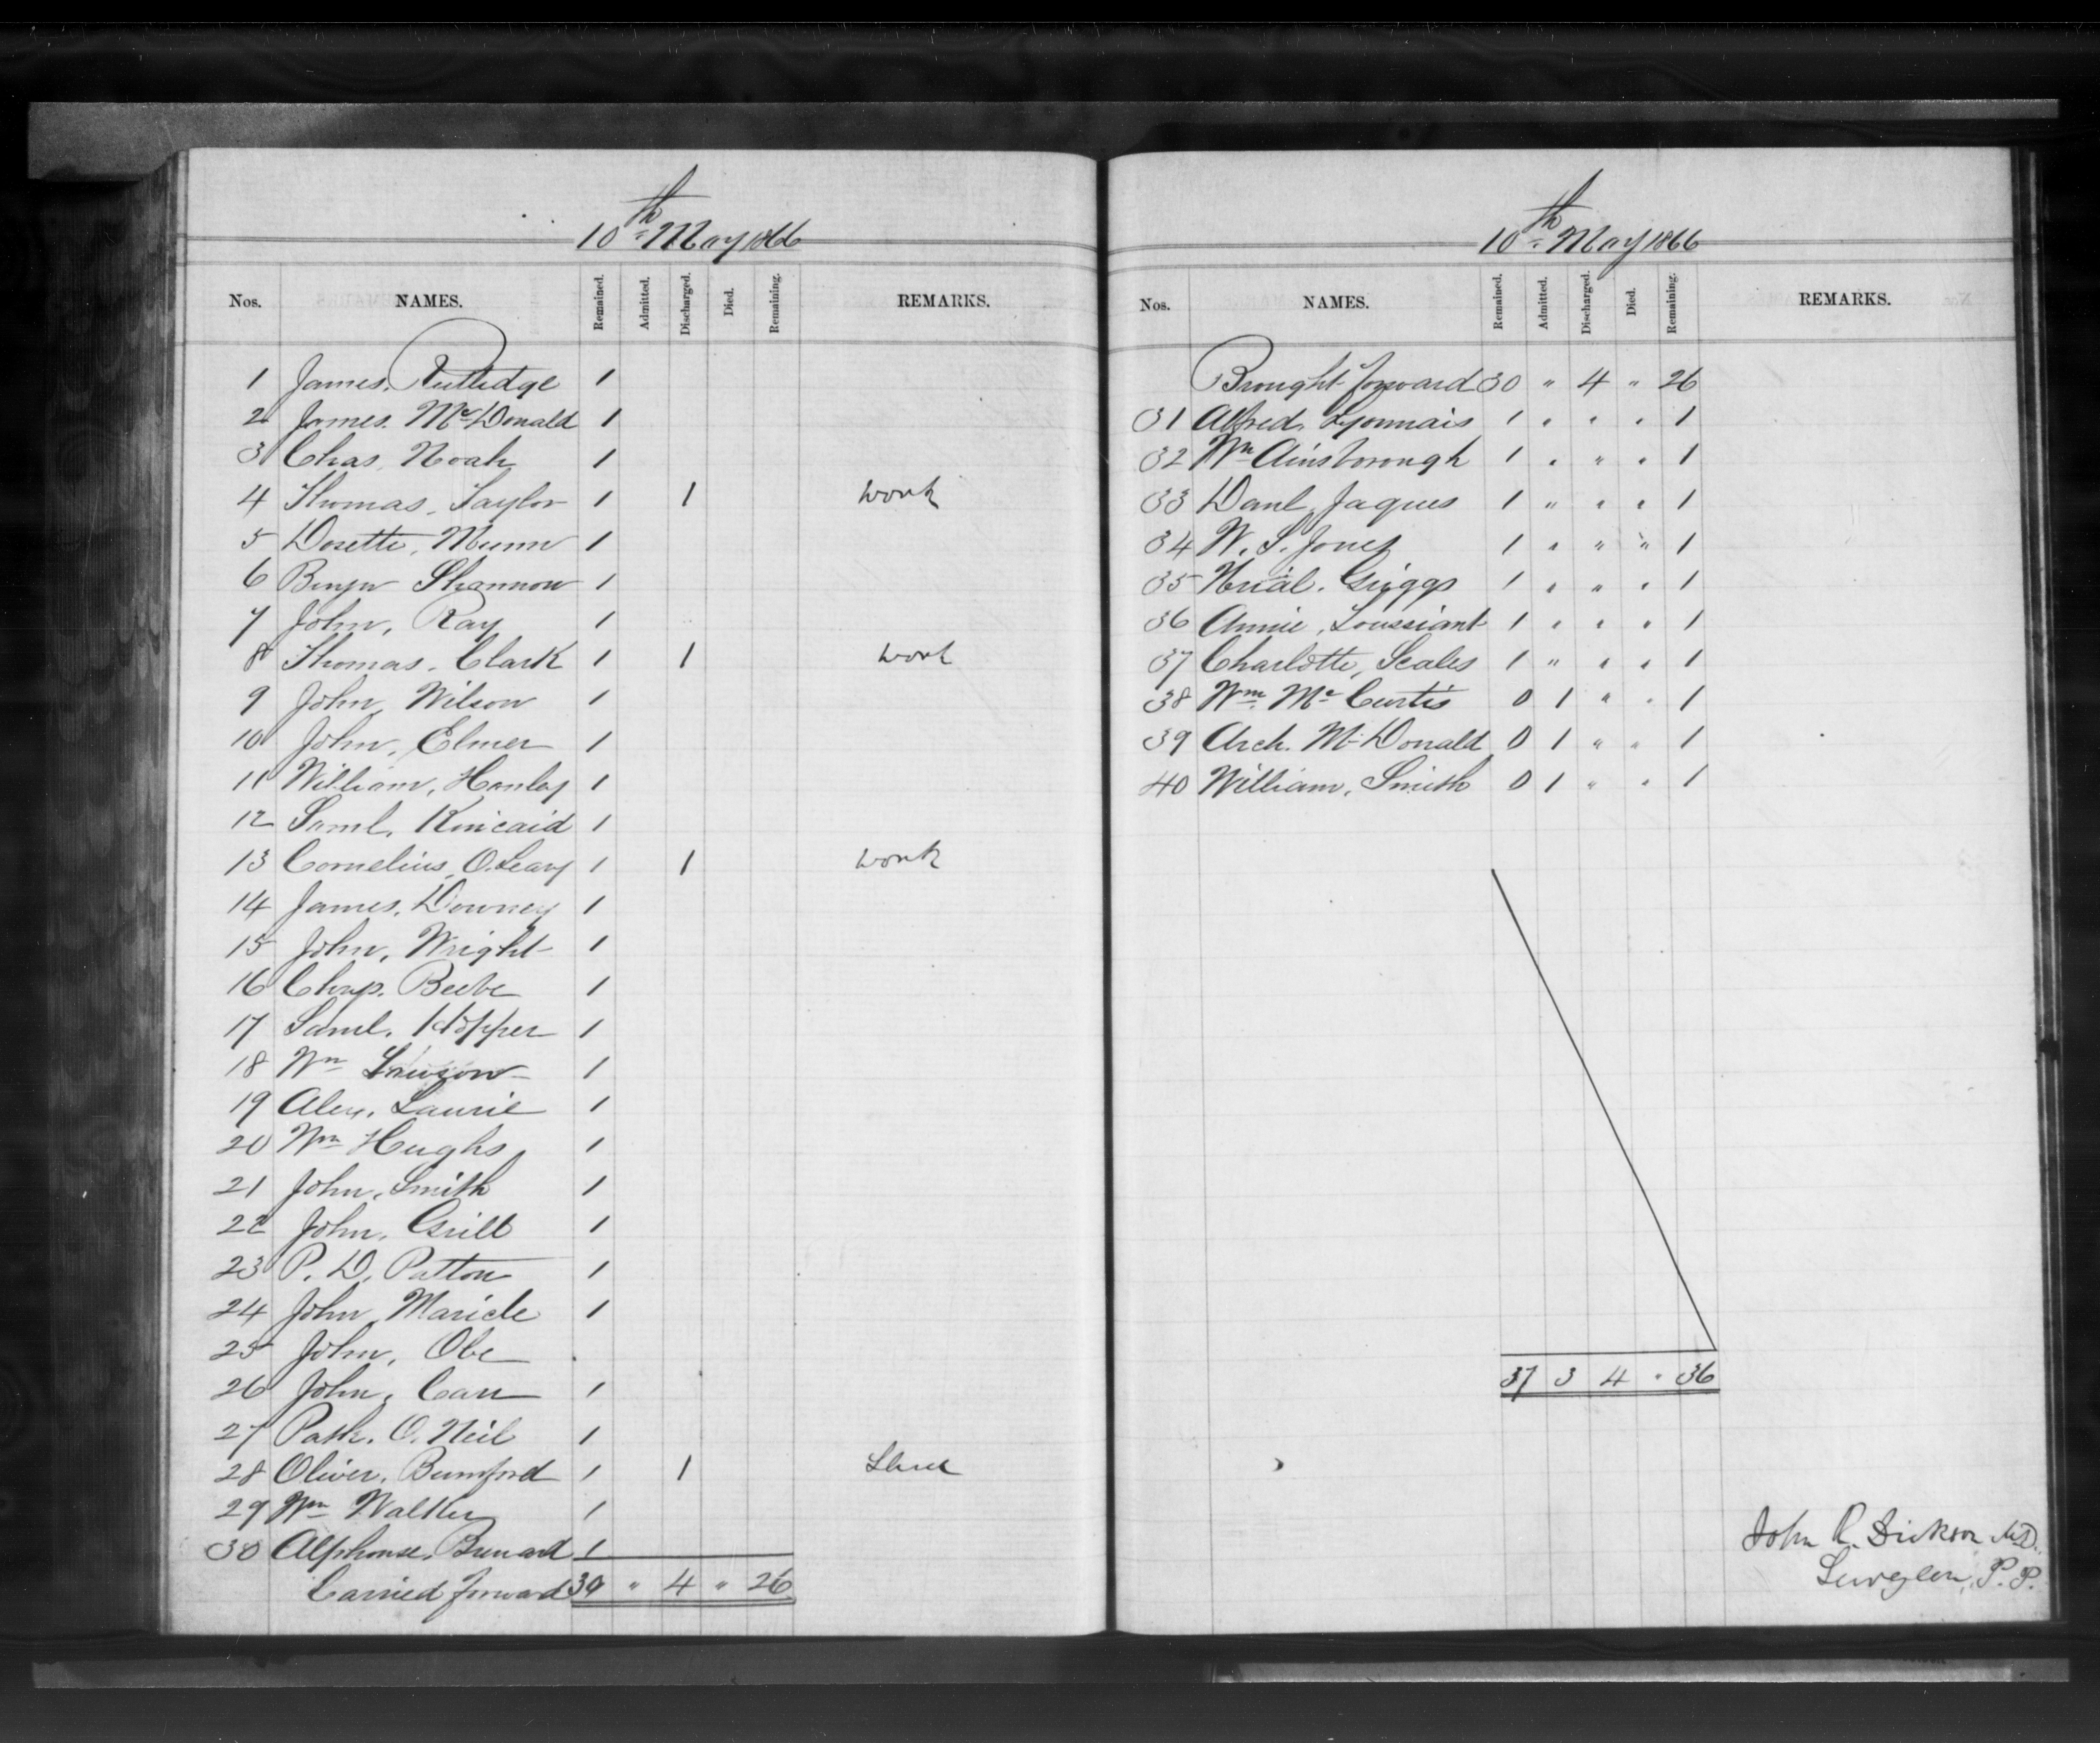 10th May 1866
Nos. NAMES. Remained. Admitted. Discharged. Died. Remaining. REMARKS.
1 James. Rutledge 1
2 James. McDonald 1
3 Chas. Noah 1
4 Thomas. Taylor 1 1 work
5 Dosette, Munn 1
6 Benjn Shannon 1
7 John, Ray 1
8 Thomas. Clark 1 1 work
9 John, Wilson 1
10 John, Elmer 1
11 William, Hanley 1
12 Saml. Kincaid 1
13 Cornelius, O.Leary 1 1 work
14 James. Downey 1
15 John, Wright 1
16 Beebe 1
17 Saml. Hopper 1
18 Wm 1
19 Alex. Laurie 1
20 Wm Hughs 1
21 John, Smith 1
22 John, Grill 1
23 P. D. Patton 1
24 John, Maricle 1
25 John, Obe
26 John, Carr 1
27 Patk. O. Neil 1
28 Oliver. Bumford 1 1
29 Wm Walker 1
30 Alphonse. 1
Carried forward 30 " 4 " 26
10th May 1866
Nos. NAMES. Remained. Admitted. Discharged. Died. Remaining. REMARKS.
Brought forward 30 " 4 " 26
31 Alfred. Lyonnais 1 " " " 1
32 Wm Ainsborough 1 " " " 1
33 Danl. Jaques 1 " " " 1
34 W. S. Jones 1 " " " 1
35 Griggs 1 " " " 1
36 Annie, Toussiant 1 " " " 1
37 Charlotte, Scales 1 " " " 1
38 Wm. Mc Curtis 0 1 " " 1
39 Arch. McDonald 0 1 " " 1
40 William, Smith 0 1 " " 1
37 3 4 " 36
John R. Dickson M.D.
Surgeon, P. P.